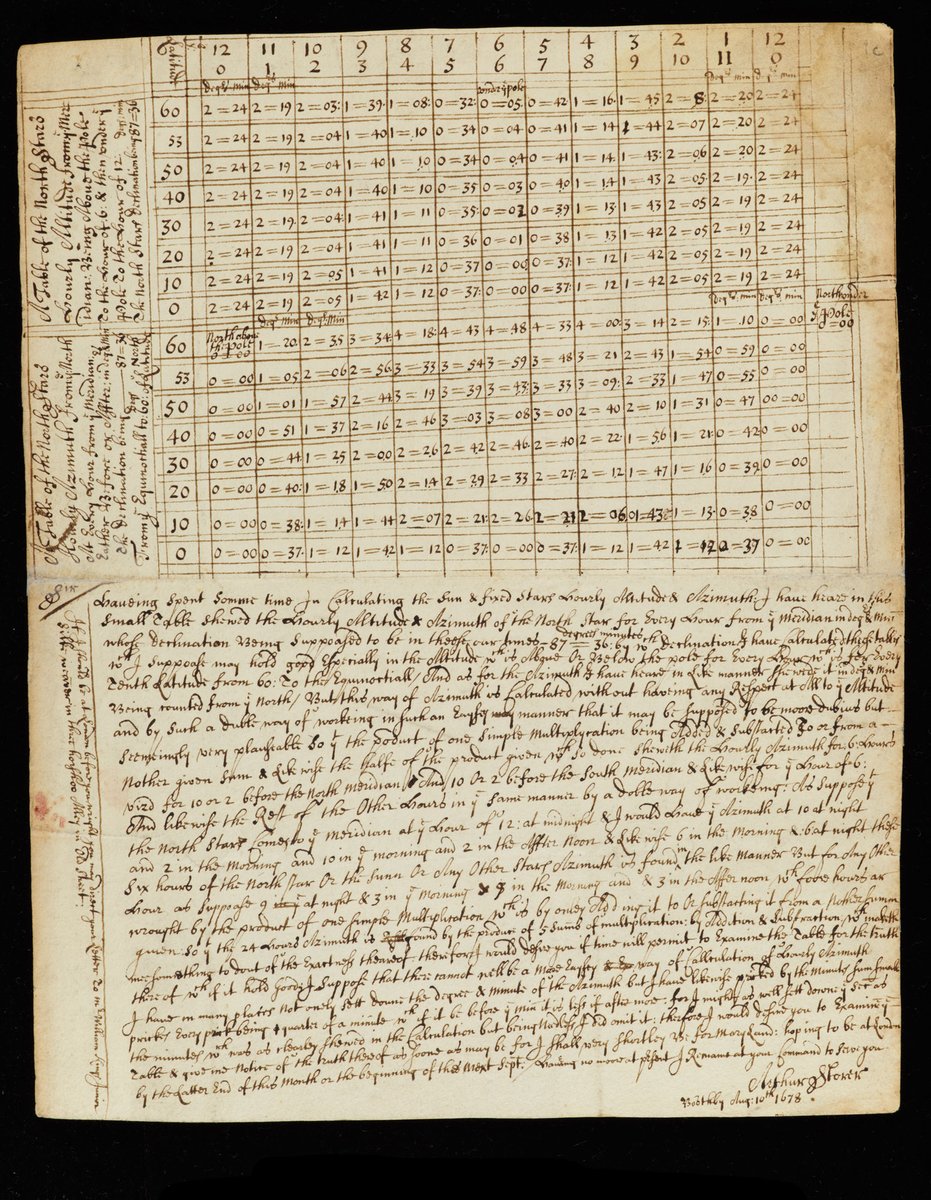 Latitude 12 11 10 9 8 7 6 5 4 3 2 1 12
0 1 2 3 4 5 6 7 8 9 10 11 0
A Table of the North Stars
Hourly Altitude from ye Mer
idian: Being Above the Pole
To the Hour of 6: & then under ye
Pole To the Hour of 12
The North Stars Declination being 87=36
degs min degs min under ye pole Degs min degs min
60 2=24 2=19 2=03: 1=39: 1=08: 0=32: 0=05: 0=42 1=16: 1=45 2=8: 2=20 2=24
53 2=24 2=19 2=04 1=40 1=10 0=34 0=04 0=41 1=14 1=44 2=07 2=20 2=24
50 2=24 2=19 2=04 1=40 1=10 0=34 0=04 0=41 1=14: 1=43: 2=06 2=20 2=24
40 2=24 2=19 2=04 1=40 1=10 0=35 0=03 0=40 1=14 1=43 2=05 2=19: 2=24
30 2=24 2=19 2=04: 1=41 1=11 0=35: 0=02 0=39 1=13: 1=43 2=05 2=19 2=24
20 2=24 2=19 2=04 1=41 1=11 0=36 0=01 0=38 1=13 1=42 2=05 2=19 2=24
10 2=24 2=19 2=05 1=41 1=12 0=37 0=00 0=37: 1=12 1=42 2=05 2=19 2=24
0 2=24 2=19 2=05 1=42 1=12 0=37: 0=00 0=37: 1=12 1=42 2=05 2=19 2=24
A Table of the North Stars
Hourly Azimuth from ye North
At Every Hour from ye Meridian
Eather Before or Affter: in degs & Min
the Declination being 87=36
From ye Equinoctiall to: 60: of Latitude
degs Min degs Min Degs: min degs: min
North above the Pole North under ye Pole 0=00
60 0=00 1=20 2=35 3=34: 4=18: 4=43 4=48 4=33 4=00: 3=14 2=15: 1=10 0=00
53 0=00 1=05 2=06 2=56 3=33 3=54 3=59 3=48 3=21 2=43 1=54 0=59 0=00
50 0=00 1=01 1=57 2=44 3=19 3=39 3=43: 3=33 3=09: 2=33 1=47 0=55 0=00
40 0=00 0=51 1=37 2=16 2=46 3=03 3=08 3=00 2=40 2=10 1=31 0=47 00=00
30 0=00 0=44 1=25 2=00 2=26 2=42 2=46 2=40 2=22: 1=56 1=21: 0=42 0=00
20 0=00 0=40: 1=18 1=50 2=14 2=29 2=33 2=27: 2=12 1=47 1=16 0=39 0=00
10 0=00 0=38: 1=14 1=44 2=07 2=21: 2=26 2=21 2=06 1=43 1=13: 0=38 0=00
0 0=00 0=37: 1=12 1=42 1=12 0=37: 0=00 0=37: 1=12 1=42 1=12 0=37 0=00
Sir
Haveing Spent Somme time In Calculating the Sun & fixed Stars Hourly Altitude & Azimuth I have heare in this
Small Table shewed the Hourly Altitude & Azimuth of the North Star for Every Hour from ye Meridian in degs & Min
whose declination Being Supposed to be in these our times degrees minutes 87=36: by wch Declination I have Calculated these tables
wch I Suppose may hold good Especially in the Altitude wch is Above Or Below the pole for Every Hour wch is for Every
Tenth Latitude from 60: To the Equinoctiall And as for the Azimuth I have heare in Like manner shewed it in degs & Min
Being counted from ye North But this way of Azimuth is Calculated without haveing any Respect at All to ye Altitude
and by Such a duble way of working in Such an Eassey manner that it may be Supposed to be moor dubius but
Seemeingly very plauseable So yt the product of one Simple Multiplycation being Added & Substracted To or from a
Nother given Sum & Likewise the halfe of the product given wch So done sheweth the Hourly Azimuth for: 6: Hours
vizd for 10 or 2 before the North Meridian And 10 Or 2 before the South Meridian & Likewise for ye Hour of 6:
And likewise the Rest of the Other Hours in ye Same manner by a doble way of workeing: As Suppose yt
the North Stars Comes to ye meridian at ye Hour of 12: at midnight & I would Have ye Azimuth at 10 at night
and 2 in the Morning and 10 in ye morning and 2 in the Affter Noon & Likewise 6 in the Morning & 6 at night these
Six hours of the North Star Or the Sunn Or Any Other Stars Azimuth is found in the like Manner But for Any Other
Hour as Suppose 9 at night & 3 in ye Morning & 9 in the Morning and & 3 in the Affernoon wch foore hours ar
wrought by the product of one Simple Multiplication wch is by onely Adding it to Or Substracting it from a Nother Summ
given So yt the 24 Hours Azimuth is found by the product of 5 Sums of multiplication: by Addition & Substraction wch maketh
me Something to dout of the Exactness theareof therefore I would desire you if time will permit to Examine the Table for the truth
there of wch if it hold Good I Suppose that there cannot well be a More Eassey way of Calculation of Hourly Azimuth
I have in many places not onely Sett downe the degree & minute of the Azimuth but I have likewise pricked by the minute Sum Small
pricks Every prick being 1 quarter of a minute wch if it be before ye min it is less if after more: for I mighty as well sett downe ye Sec as
the minutes wch was as clearley shewed in the Calculation but being Needless I did omit it: therefore I would desire you to Examine ye
Table & give me Notice of the truth thereof as Soone as may be for I shall very Shortley Be for Maryland: hoping to be at London
by the Latter End of this Month or the beginning of the Next Sept. Haveing no more at present I Remane at your Command to Serve you
Arthur Storer
Boothby Aug: 10th 1678